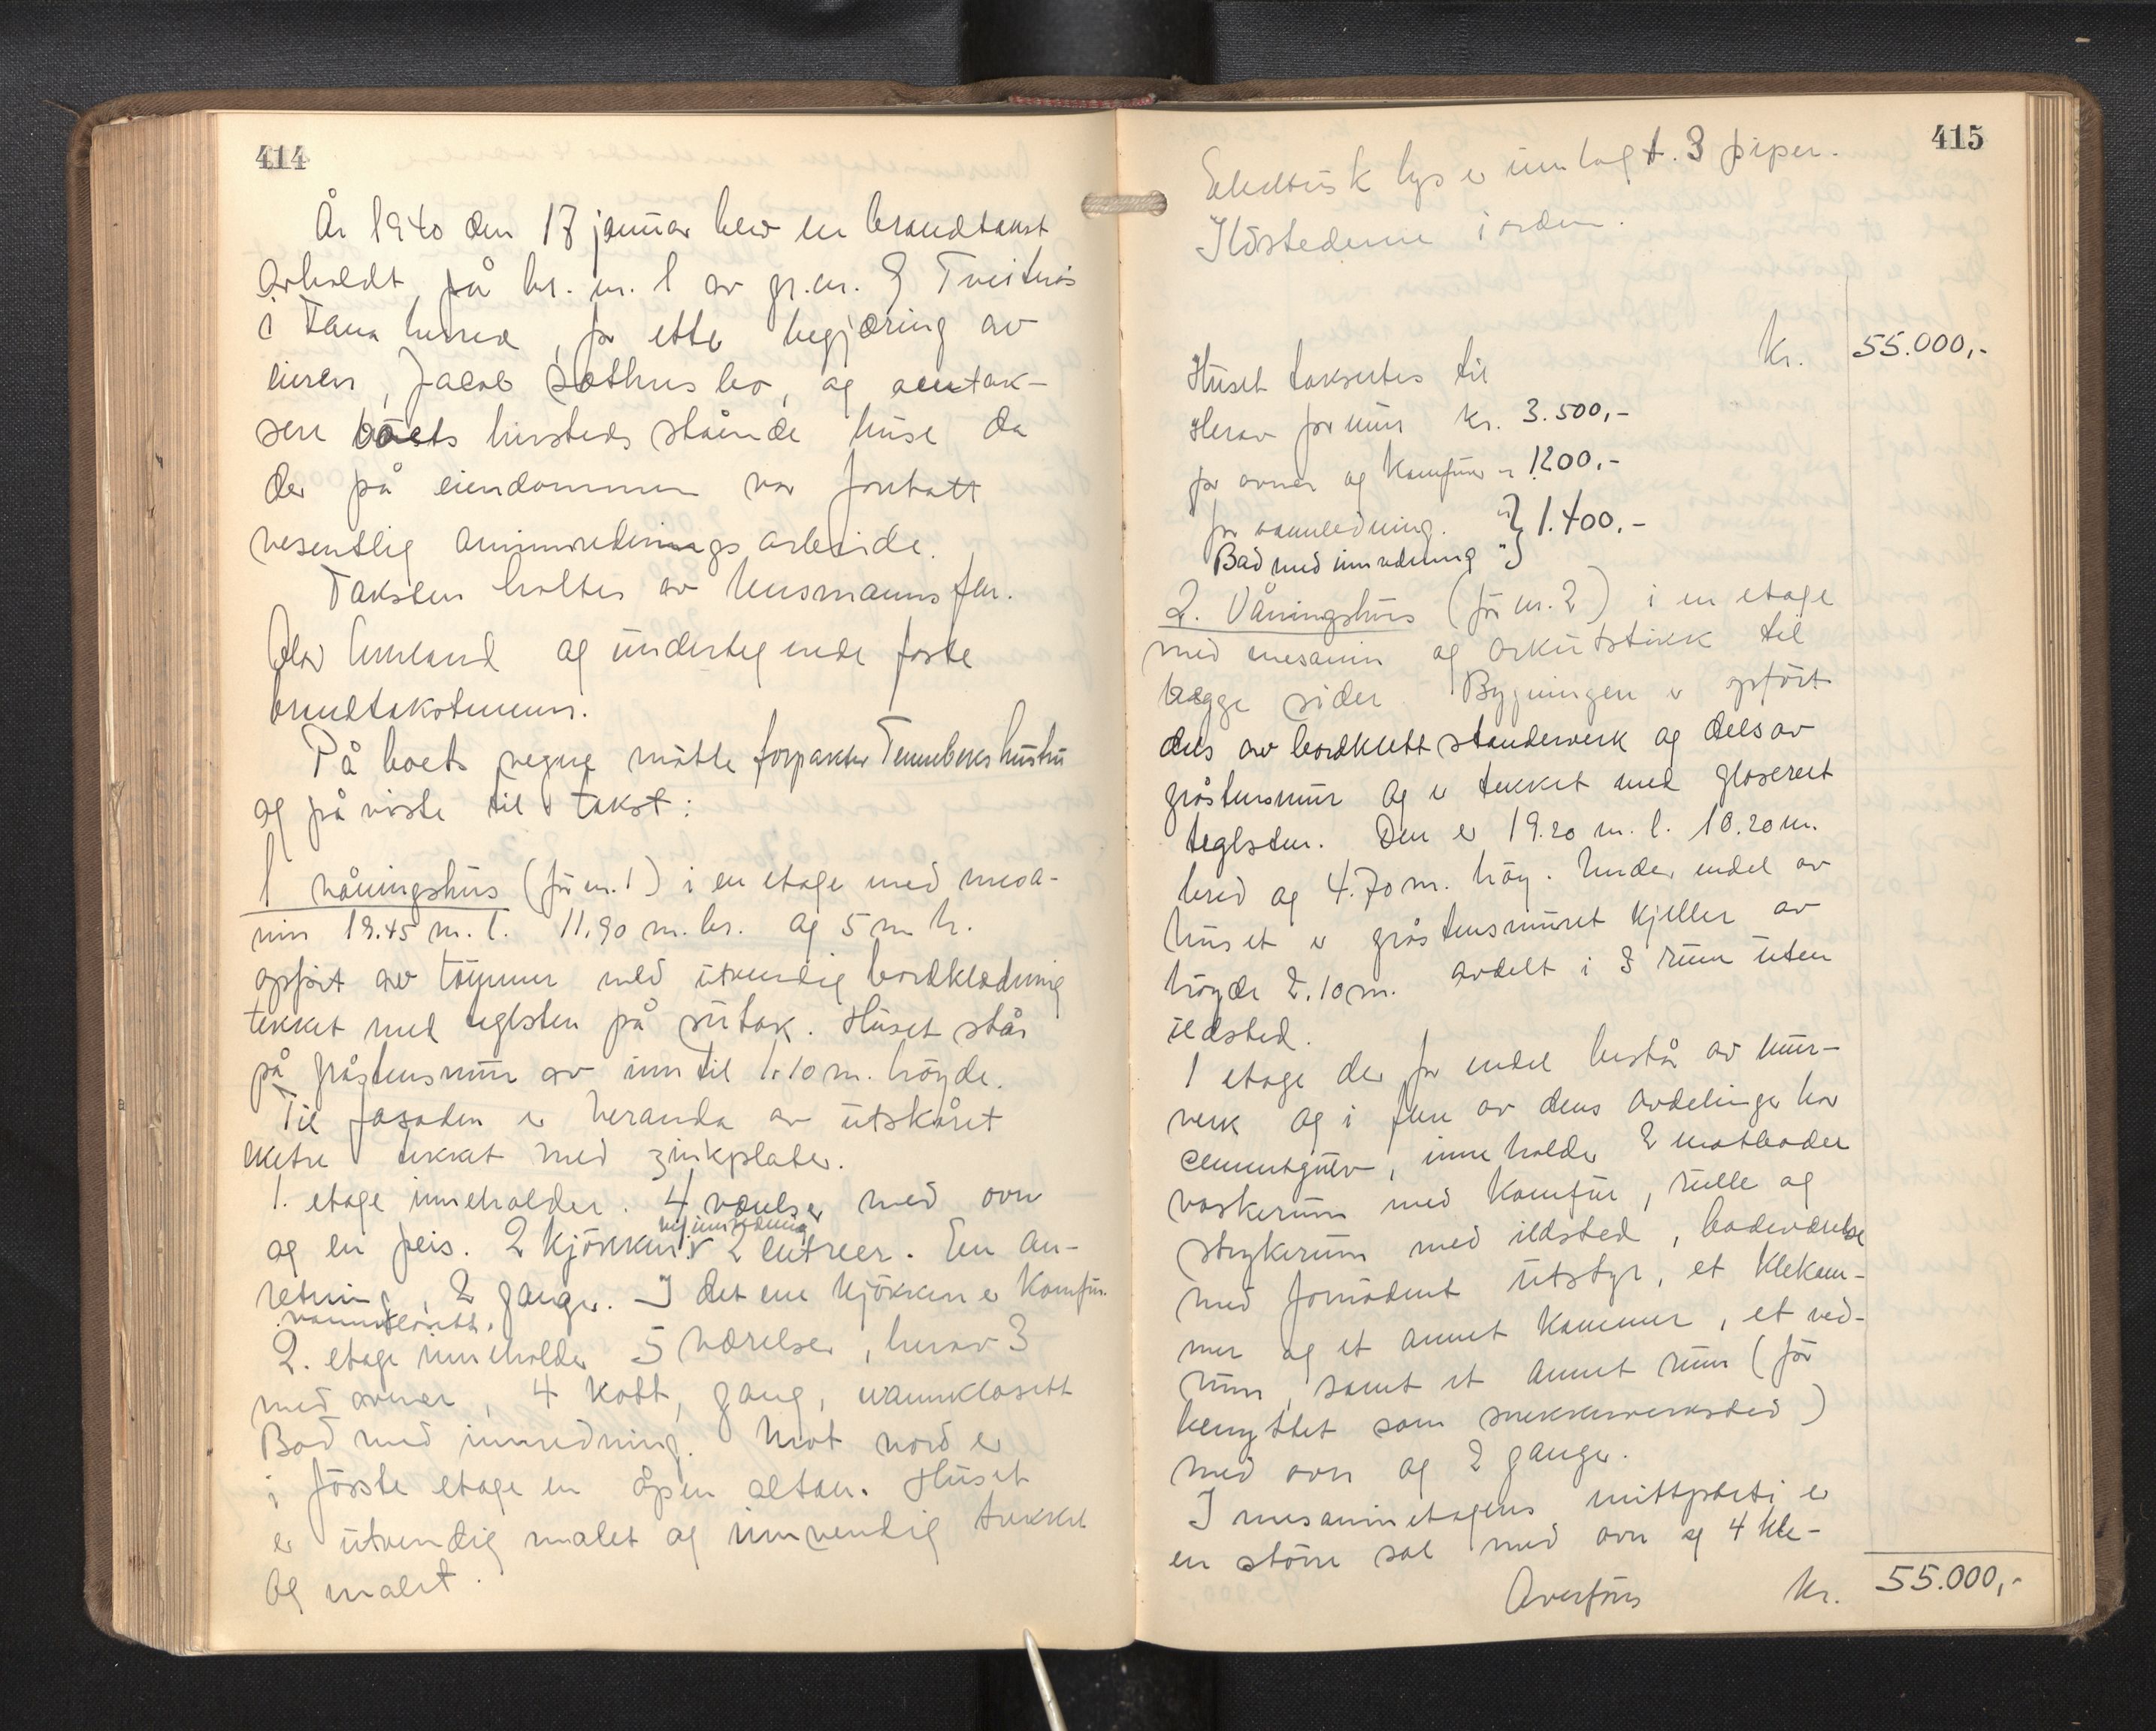 414
År 1940 den 17 januar blev en brandtakst
avholdt på br. nr. 1 av gr. nr. 3 Tveiterås
i Fana herred, for efter begjæring av
eieren, Jacob Sæthres bo, og omtak-
sere boets hersteds stående huse da
der på eiendommen var foretatt
vesentlig ominnredningsarbeide.
Taksten holtes av lensmannsfm.
Olav og undertegnede faste
brandtakstmenn.
På boets vegne møtte forpakter hustru
og påviste til takst:
1 våningshus (før nr. 1) i en etage med mesa-
nin 19.45 m. l. 11.90 m. br. og 5 m h.
opført av tømmer med utvendig bordkledning
tekket med teglsten på sutak. Huset står
på gråstensmur av inntil 1.10 m. høyde.
Til fasaden er veranda av utskåret
tekket med zinkplater.
1. etage inneholder. 4 værelser med ovn
ny innredning
og en peis. 2 kjøkken 2 entreer. En an-
retning, 2 ganger. I det ene kjøkken er komfur.
vannklosett.
2. etage inneholder 5 værelser, herav 3
med ovner, 4 kott, gang, vannklosett
Bad med innredning. Mot nord er
i første etage en åpen altan. Huset
er utvendig malet og innvendig trukket
og malt.
415
Elektrisk lys er innlagt. 3 piper.
Ildstederne i orden.
Huset takseres til kr. 55.000,-
Herav for mur kr. 3.500,-
for ovner og komfur " 1200.-
for vannledning. " } 1.400.-
Bad med innredning " }
2. Våningshus (før nr. 2) i en etage
med mesanin og arkutstikk til
begge sider. Bygningen er opført
dels av bordklett standerverk og dels av
gråstensmur og er tekket med glasert
teglsten. Den er 19.20 m. l. 10.20 m.
bred og 4.70 m. høy. Under endel av
huset er gråstensmuret kjeller av
høyde 2.10 m. avdelt i 3 rum uten
ildsted.
1 etage der for endel består av mur-
verk og i flere av dens avdelinger har
cementgulv, inneholder 2 matboder
vaskerum med komfur, rulle og
strykerum med ildsted, badeværelse
med fornødent utstyr, et klekam-
mer og et annet kammer, et ved-
rum, samt et annet rum (før
benyttet som snekkerverksted)
med ovn og 2 ganger.
I mesaninetagens midtparti er
en større sal med ovn og 4 kle-
Overføres kr. 55.000,-